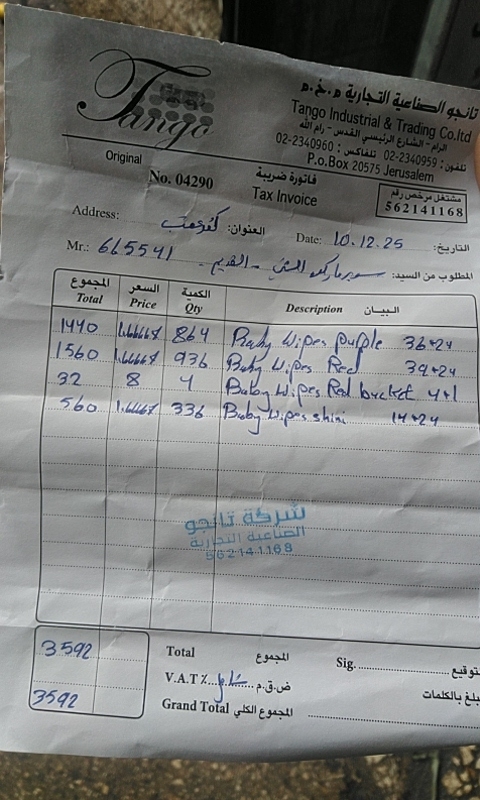 Tango
تانجو الصناعية التجارية م.خ.م
Tango Industrial & Trading Co.ltd
الرام - الشارع الرئيسي القدس - رام الله
تلفون: 02-2340959 تلفاكس: 02-2340960
P.o.Box 20575 Jerusalem
Original
No. 04290
فاتورة ضريبة
Tax Invoice
مشتغل مرخص رقم
562141168
Address: العنوان:
Date: 10.12.25 التاريخ:
Mr.: 665541 المطلوب من السيد:
المجموع السعر الكمية البيان
Total Price Qty Description
1440 1.66667 864 Baby Wipes purple 36*24
1560 1.66667 936 Baby Wipes Red 39*24
32 8 4 Baby Wipes Red bucket 4*1
560 1.66667 336 Baby Wipes shini 14*24
شركة تانجو
الصناعية التجارية
562141168
3592 Total المجموع
Sig. توقيع
V.A.T٪ ض.ق.م
3592 Grand Total المجموع الكلي
بلغ بالكلمات